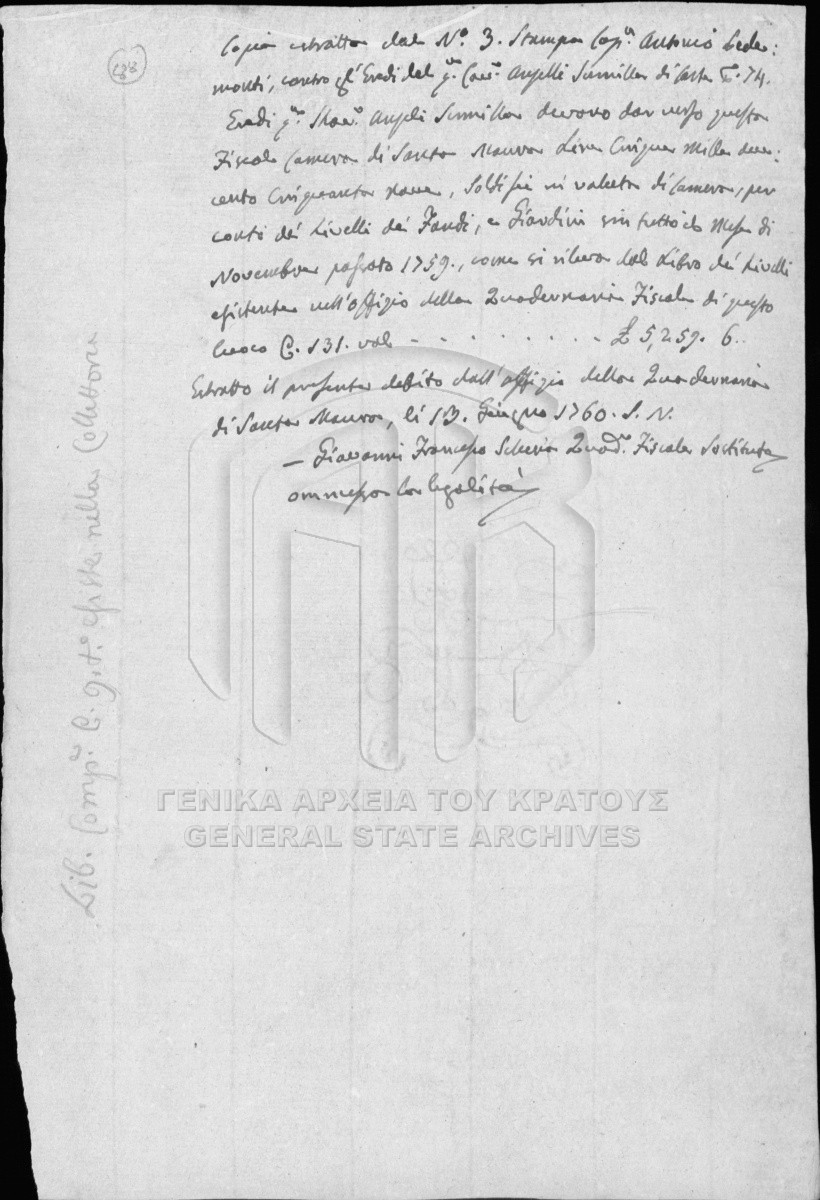 188
Copia estratta dal N.º 3. Stampa Cap.ⁿ Antonio Lede:
monti, contro gl'Eredi del q.ᵐ Cav.ʳ Angeli Sumilla di Carte 74.
Eredi q.ᵐ Angeli Sumilla devono dar verso questa
Fiscal Camera di Santa Maura Lire Cinque Mille due:
cento Cinquanta nove, Soldi sei in valuta di Camera, per
conto dei Livelli dei Fondi, e Giardini sin tutto il Mese di
Novembre passato 1759., come si rileva dal Libro dei Livelli
esistente nell'offizio della Quadernaria Fiscale di questo
luoco C. 131. val - - - - £ 5,259. 6.
Estratto il presente debito dall'offizio della Quadernaria
di Santa Maura, li 13. Giugno 1760. S. N.
— Giovanni Francesco Quad.ʳ Fiscale Sostituto
ommessa la legalità
Lib. Comp.ᵒ C. 91. t.º esiste nella Collettoria
ΓΕΝΙΚΑ ΑΡΧΕΙΑ ΤΟΥ ΚΡΑΤΟΥΣ
GENERAL STATE ARCHIVES